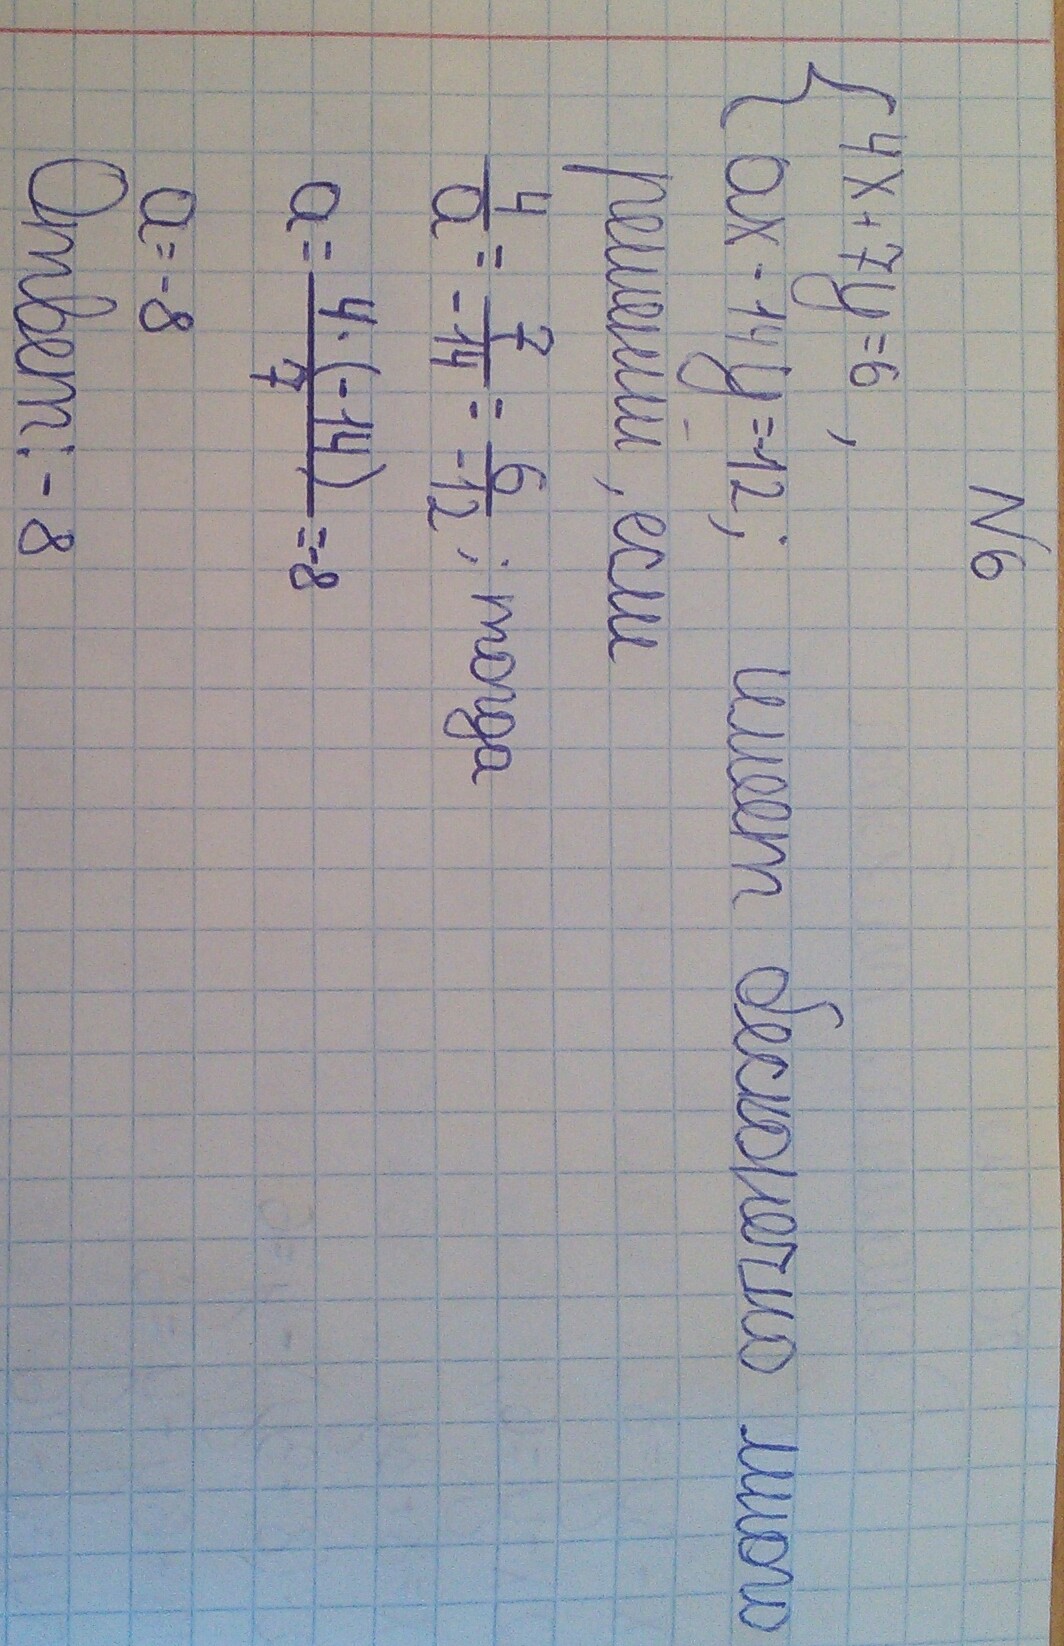 №6
{ 4x + 7y = 6,
ax - 14y = -12; имеет бесконечно много
решений, если
4/a = 7/-14 = 6/-12; тогда
a = 4·(-14)/7 = -8
a = -8
Ответ: -8